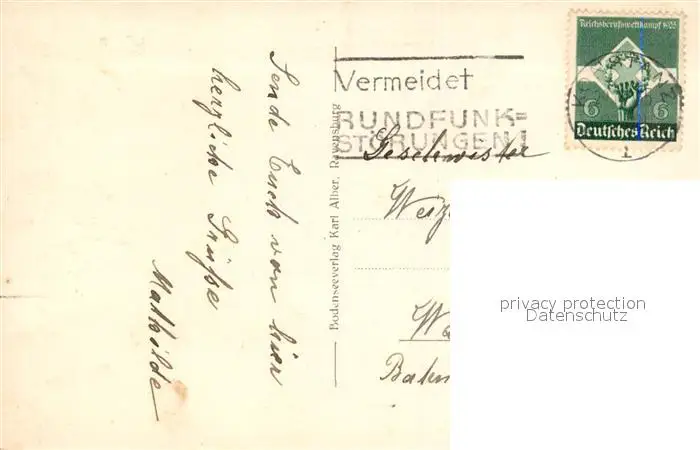 Sende Euch von hier
herzliche Grüße
Mathilde
Bodenseeverlag Karl Alber, Ravensburg
Vermeidet
RUNDFUNK=
STÖRUNGEN!
Reichsberufswettkampf 1935
6 6
Deutsches Reich
KONSTANZ
1
Geschwister
privacy protection
Datenschutz